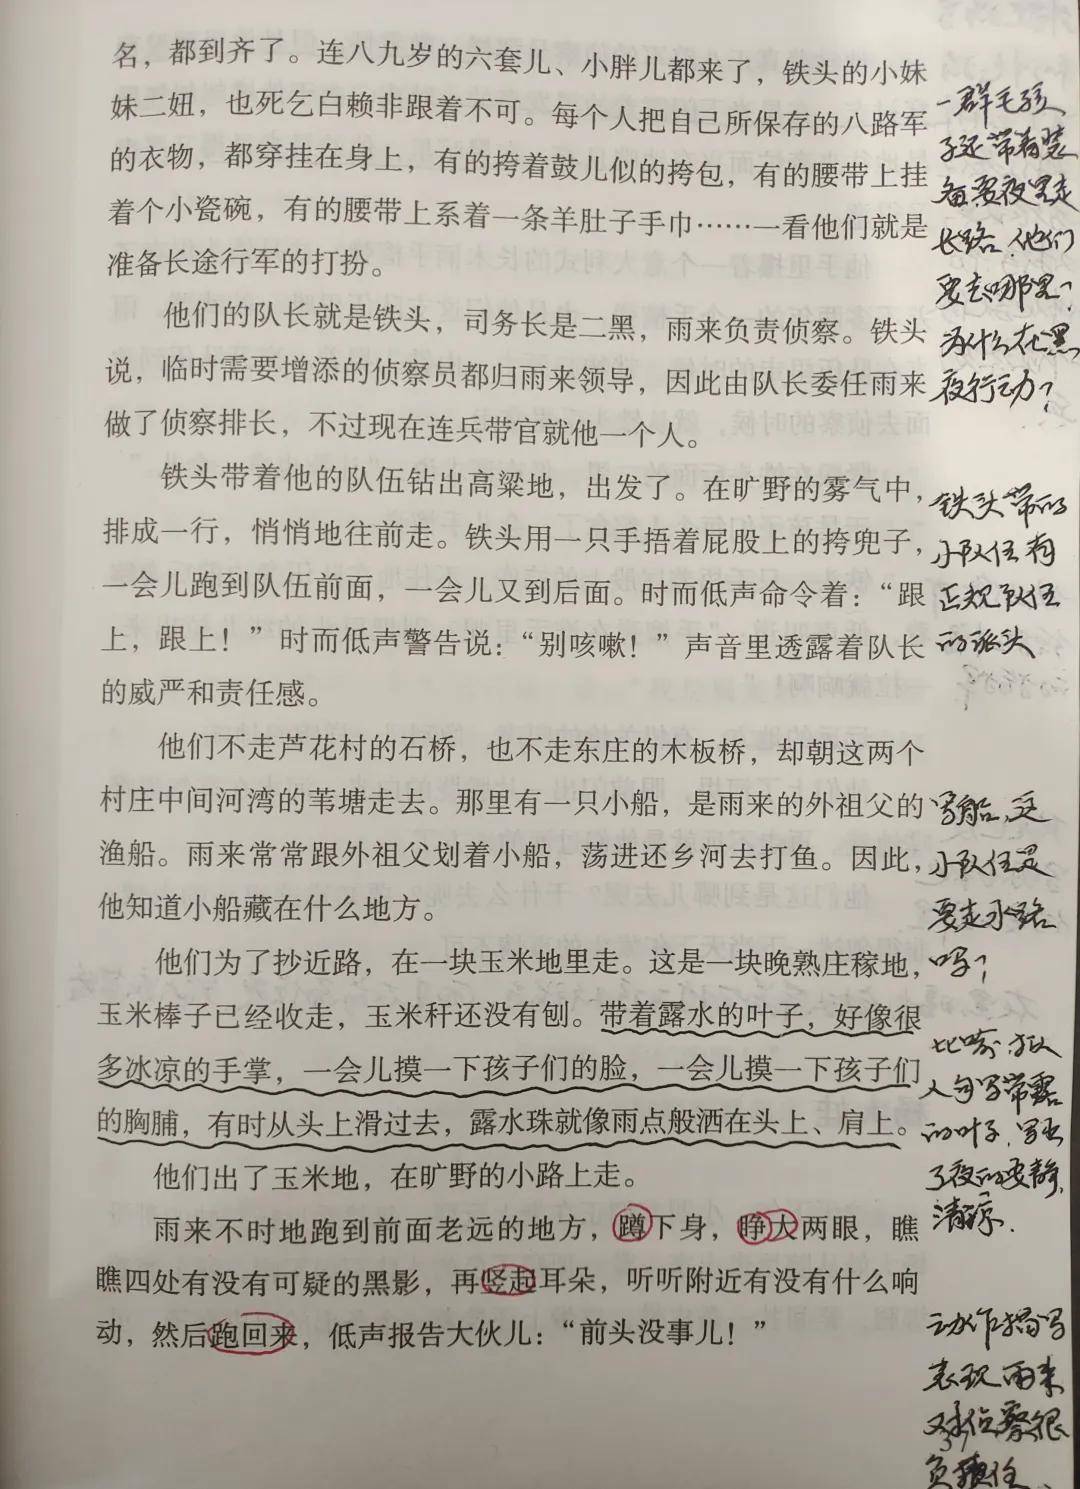 名，都到齐了。连八九岁的六套儿、小胖儿都来了，铁头的小妹
妹二妞，也死乞白赖非跟着不可。每个人把自己所保存的八路军
的衣物，都穿挂在身上，有的挎着鼓儿似的挎包，有的腰带上挂
着个小瓷碗，有的腰带上系着一条羊肚子手巾……一看他们就是
准备长途行军的打扮。
他们的队长就是铁头，司务长是二黑，雨来负责侦察。铁头
说，临时需要增添的侦察员都归雨来领导，因此由队长委任雨来
做了侦察排长，不过现在连兵带官就他一个人。
铁头带着他的队伍钻出高粱地，出发了。在旷野的雾气中，
排成一行，悄悄地往前走。铁头用一只手捂着屁股上的挎兜子，
一会儿跑到队伍前面，一会儿又到后面。时而低声命令着：“跟
上，跟上！”时而低声警告说：“别咳嗽！”声音里透露着队长
的威严和责任感。
他们不走芦花村的石桥，也不走东庄的木板桥，却朝这两个
村庄中间河湾的苇塘走去。那里有一只小船，是雨来的外祖父的
渔船。雨来常常跟外祖父划着小船，荡进还乡河去打鱼。因此，
他知道小船藏在什么地方。
他们为了抄近路，在一块玉米地里走。这是一块晚熟庄稼地，
玉米棒子已经收走，玉米秆还没有刨。带着露水的叶子，好像很
多冰凉的手掌，一会儿摸一下孩子们的脸，一会儿摸一下孩子们
的胸脯，有时从头上滑过去，露水珠就像雨点般洒在头上、肩上。
他们出了玉米地，在旷野的小路上走。
雨来不时地跑到前面老远的地方，蹲下身，睁大两眼，瞧
瞧四处有没有可疑的黑影，再竖起耳朵，听听附近有没有什么响
动，然后跑回来，低声报告大伙儿：“前头没事儿！”
一群毛孩
子还带着装
备要夜里走
长路，他们
要去哪里？
为什么在黑
夜行动？
铁头带的
小队伍有
正规队伍
的派头
写船，这
小队伍是
要走水路
吗？
比喻、拟
人句写带露
的叶子，写出
了夜的安静，
清凉.
动作描写
表现雨来
对侦察很
负责任
37